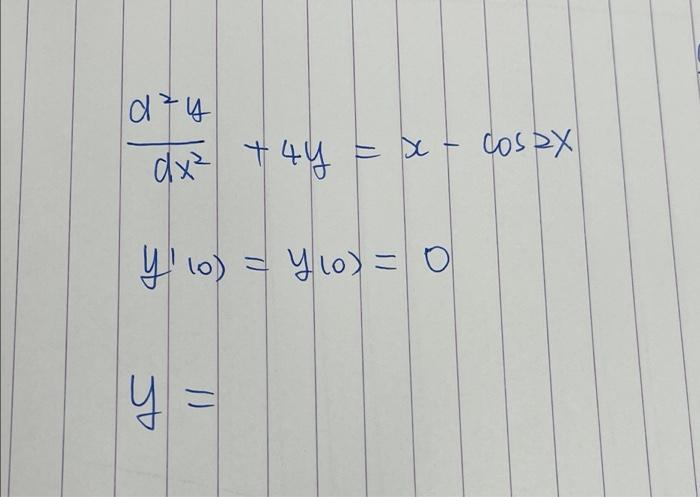 d²y/dx² + 4y = x - cos2x
y'(0) = y(0) = 0
y =